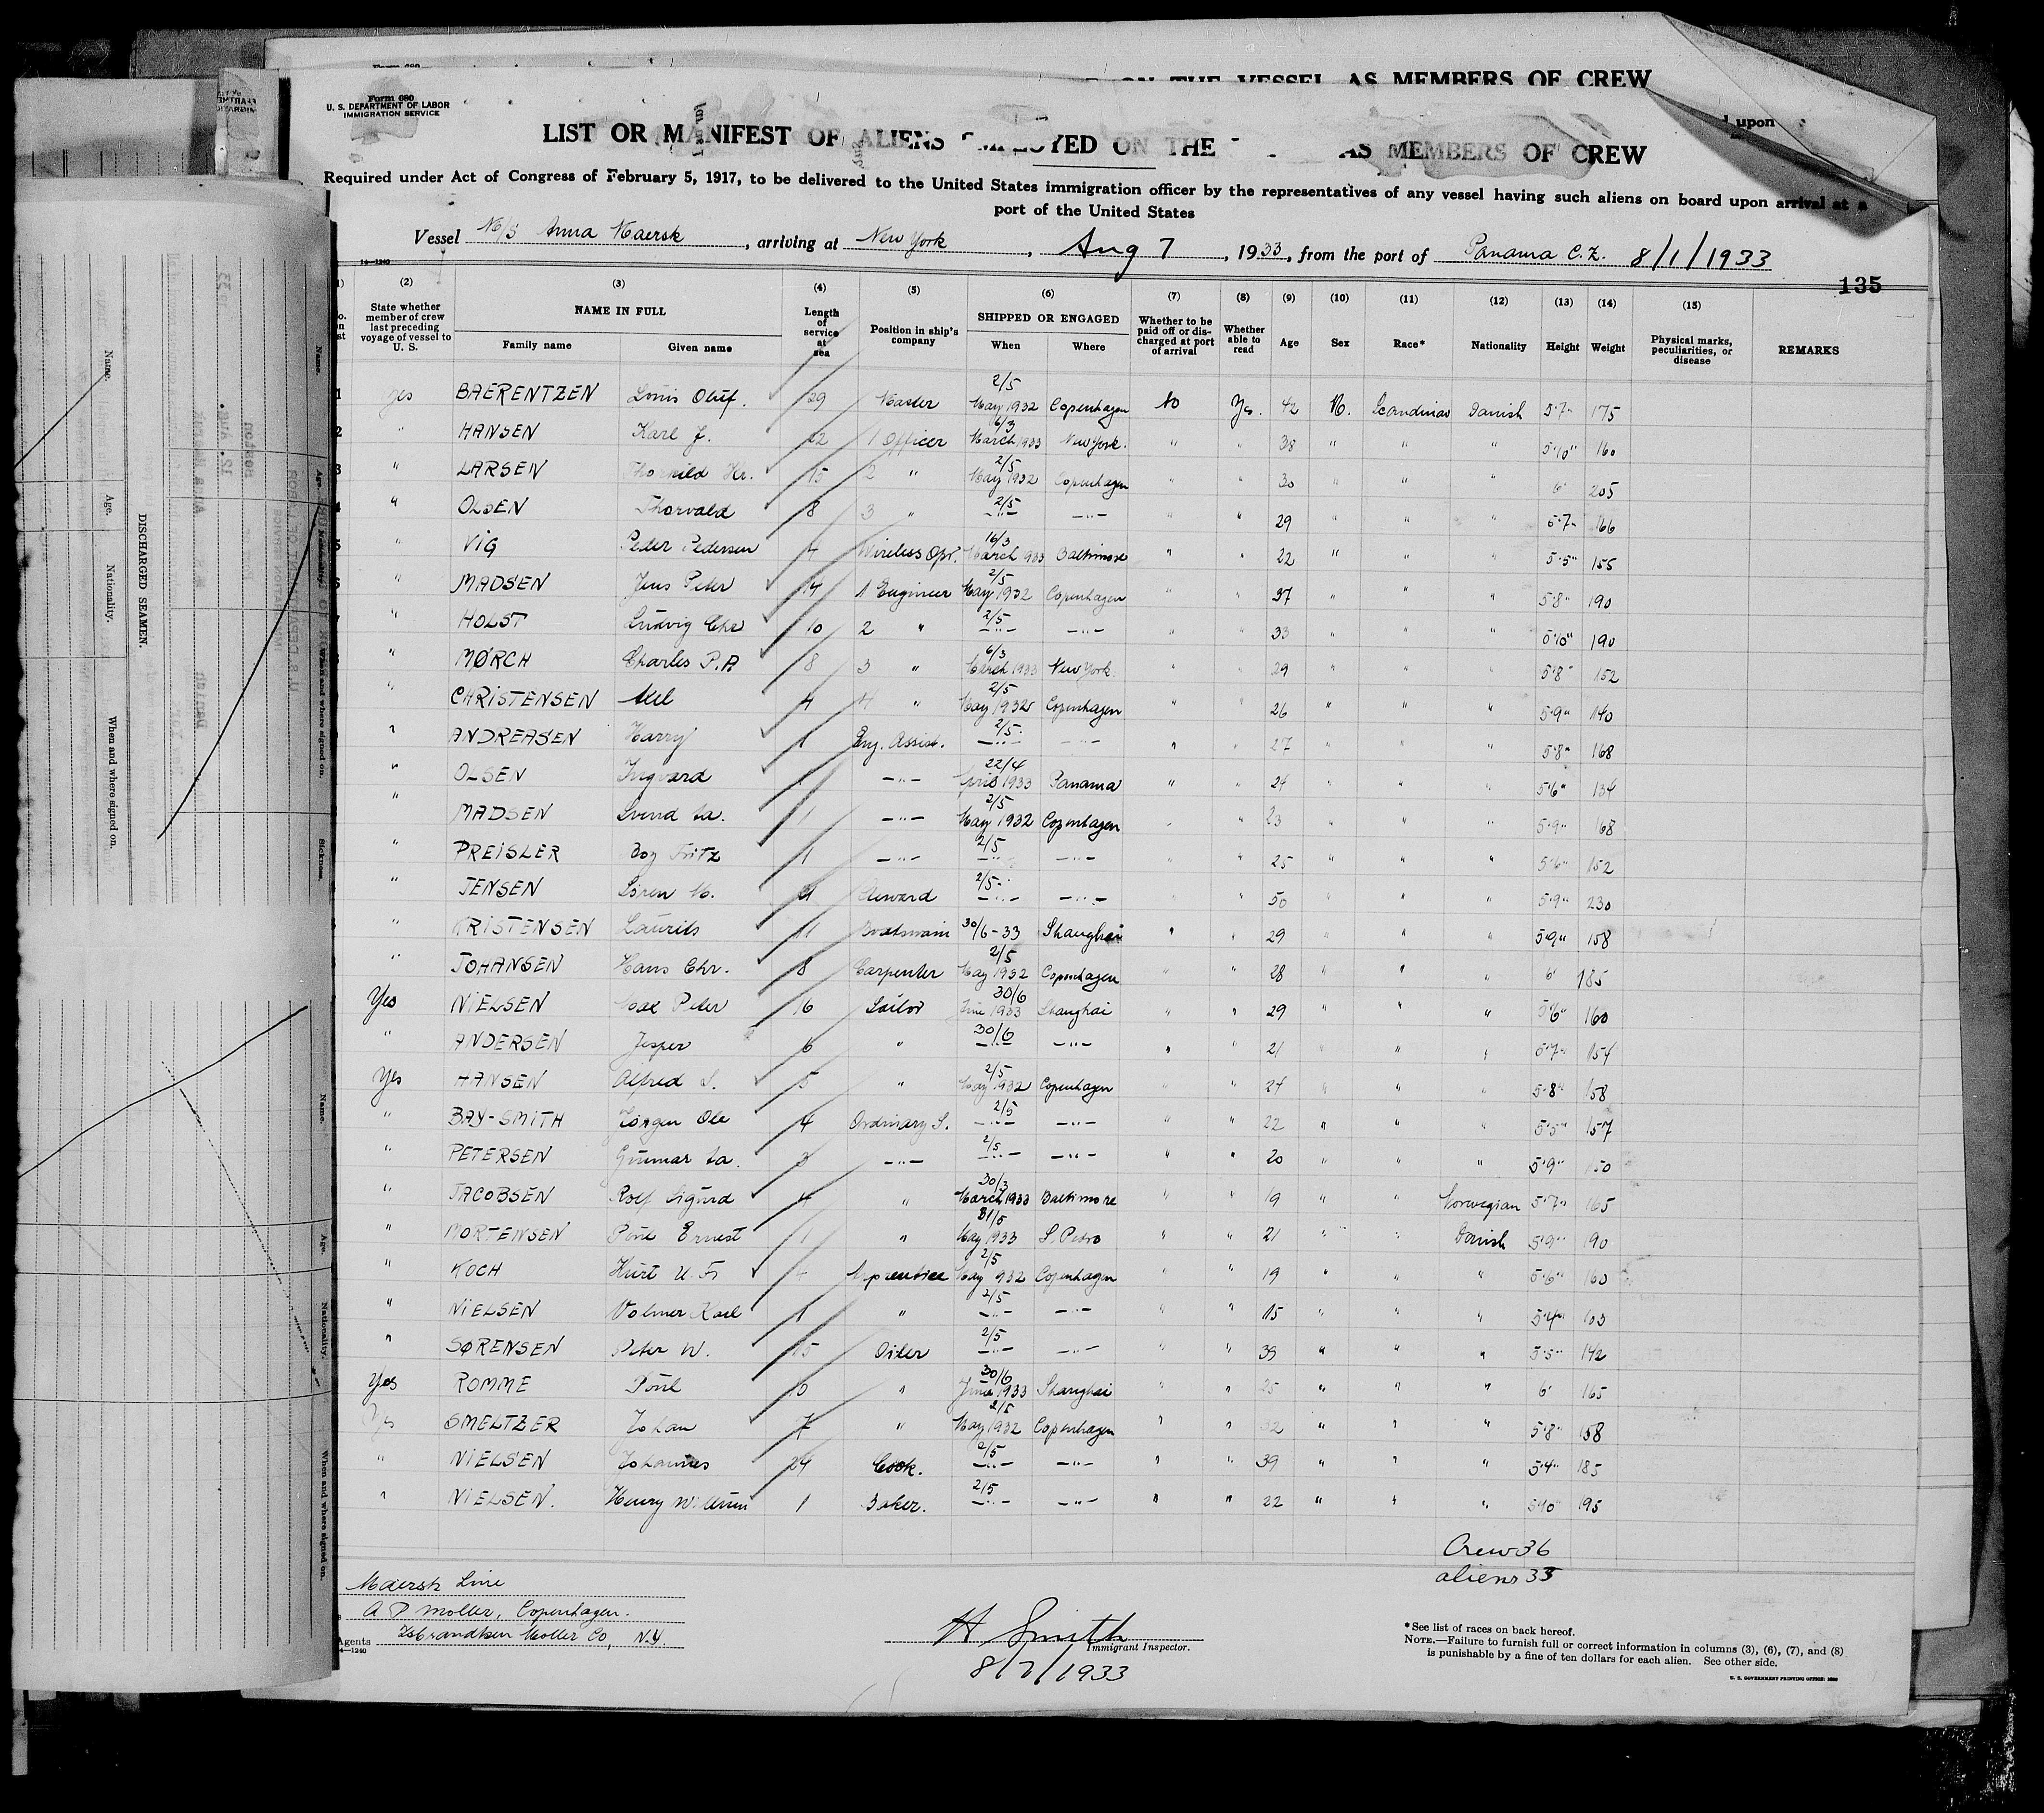 ON THE VESSEL AS MEMBERS OF CREW
Form 680
U. S. DEPARTMENT OF LABOR
IMMIGRATION SERVICE
upon
LIST OR MANIFEST OF ALIENS EMPLOYED ON THE AS MEMBERS OF CREW
Required under Act of Congress of February 5, 1917, to be delivered to the United States immigration officer by the representatives of any vessel having such aliens on board upon arrival at a
port of the United States
Vessel M/S Anna Maersk, arriving at New York, Aug 7, 1933, from the port of Panama C.Z. 8/1/1933
14—1240
135
(2) (3) (4) (5) (6) (7) (8) (9) (10) (11) (12) (13) (14) (15)
State whether member of crew last preceding voyage of vessel to U. S. NAME IN FULL Family name Given name Length of service at sea Position in ship's company SHIPPED OR ENGAGED When Where Whether to be paid off or discharged at port of arrival Whether able to read Age Sex Race* Nationality Height Weight Physical marks, peculiarities, or disease REMARKS
1 yes BAERENTZEN Louis Oluf. 29 Master 2/5 May 1932 Copenhagen No Yes. 42 M. Scandinav Danish 5'7" 175
2 " HANSEN Karl J. 22 1 Officer 6/3 March 1933 New York. " " 38 " " " 5'10" 160
3 " LARSEN 15 2 " 2/5 May 1932 Copenhagen " " 30 " " " 6' 205
4 " OLSEN Thorvald 8 3 " 2/5 —"— —"— " " 29 " " " 5'7" 166
5 " VIG Peder Pedersen 4 Wireless Opr. 16/3 March 1933 Baltimore " " 22 " " " 5'5" 155
6 " MADSEN Jens Peter 14 1 Engineer 2/5 May 1932 Copenhagen " " 37 " " " 5'8" 190
7 " HOLST Ludvig Chr 10 2 " 2/5 —"— —"— " " 33 " " " 5'10" 190
" MØRCH Charles P.P. 8 3 " 6/3 March 1933 New York. " " 29 " " " 5'8" 152
" CHRISTENSEN Axel 4 4 " 2/5 May 1932 Copenhagen " " 26 " " " 5'9" 140
" ANDREASEN Harry 1 Eng. Assist. 2/5 —"— —"— " " 27 " " " 5'8" 168
" OLSEN Ingvard 1 —"— 22/4 April 1933 Panama " " 24 " " " 5'6" 134
" MADSEN Svend Aa. 1 —"— 2/5 May 1932 Copenhagen " " 23 " " " 5'9" 168
" PREISLER Boy Fritz 1 —"— 2/5 —"— —"— " " 25 " " " 5'6" 152
" JENSEN Sören M. Steward 2/5 —"— —"— " " 50 " " " 5'9" 230
" KRISTENSEN Laurits 11 Boatswain 30/6-33 Shanghai " " 29 " " " 5'9" 158
" JOHANSEN Hans Chr. 8 Carpenter 2/5 May 1932 Copenhagen " " 28 " " " 6' 185
Yes NIELSEN Max Peter 16 Sailor 30/6 June 1933 Shanghai " " 29 " " " 5'6" 160
" ANDERSEN Jesper 6 " 30/6 —"— —"— " " 21 " " " 5'7" 154
Yes HANSEN Alfred S. 5 " 2/5 May 1932 Copenhagen " " 24 " " " 5'8" 158
" BAY-SMITH Jörgen Ole 4 Ordinary S. 2/5 —"— —"— " " 22 " " " 5'5" 157
" PETERSEN Gunnar Aa. 3 —"— 2/5 —"— —"— " " 20 " " " 5'9" 150
" JACOBSEN Rolf Sigurd 4 " 30/3 March 1933 Baltimore " " 19 " " Norwegian 5'7" 165
" MORTENSEN Ernest 1 " 31/5 May 1933 S. Pedro " " 21 " " Danish 5'9" 190
" KOCH Kurt U. Fr 4 Apprentice 2/5 May 1932 Copenhagen " " 19 " " " 5'6" 160
" NIELSEN Volmer Karl 1 " 2/5 —"— —"— " " 15 " " " 5'4" 103
" SØRENSEN Peter W. 15 Oiler 2/5 —"— —"— " " 39 " " " 5'5" 142
Yes ROMME Poul 10 " 30/6 June 1933 Shanghai " " 25 " " " 6' 165
Yes SMELTZER Johan 7 " 2/5 May 1932 Copenhagen " " 32 " " " 5'8" 158
" NIELSEN Johannes 24 Cook. 2/5 —"— —"— " " 39 " " " 5'4" 185
" NIELSEN. Henry Willum 1 Baker. 2/5 —"— —"— " " 22 " " " 5'10" 195
Crew 36
aliens 35
Maersk Line
A P Moller, Copenhagen.
Agents Isbrandtsen Moller Co, N.Y.
14—1240
H Smith
Immigrant Inspector.
8/7/1933
*See list of races on back hereof.
NOTE.—Failure to furnish full or correct information in columns (3), (6), (7), and (8)
is punishable by a fine of ten dollars for each alien. See other side.
U. S. GOVERNMENT PRINTING OFFICE
DISCHARGED SEAMEN.
Name. Age. Nationality. When and where signed on.
Name. Age. Nationality. When and where signed on. Sickness.
Name. Age. Nationality. When and where signed on.